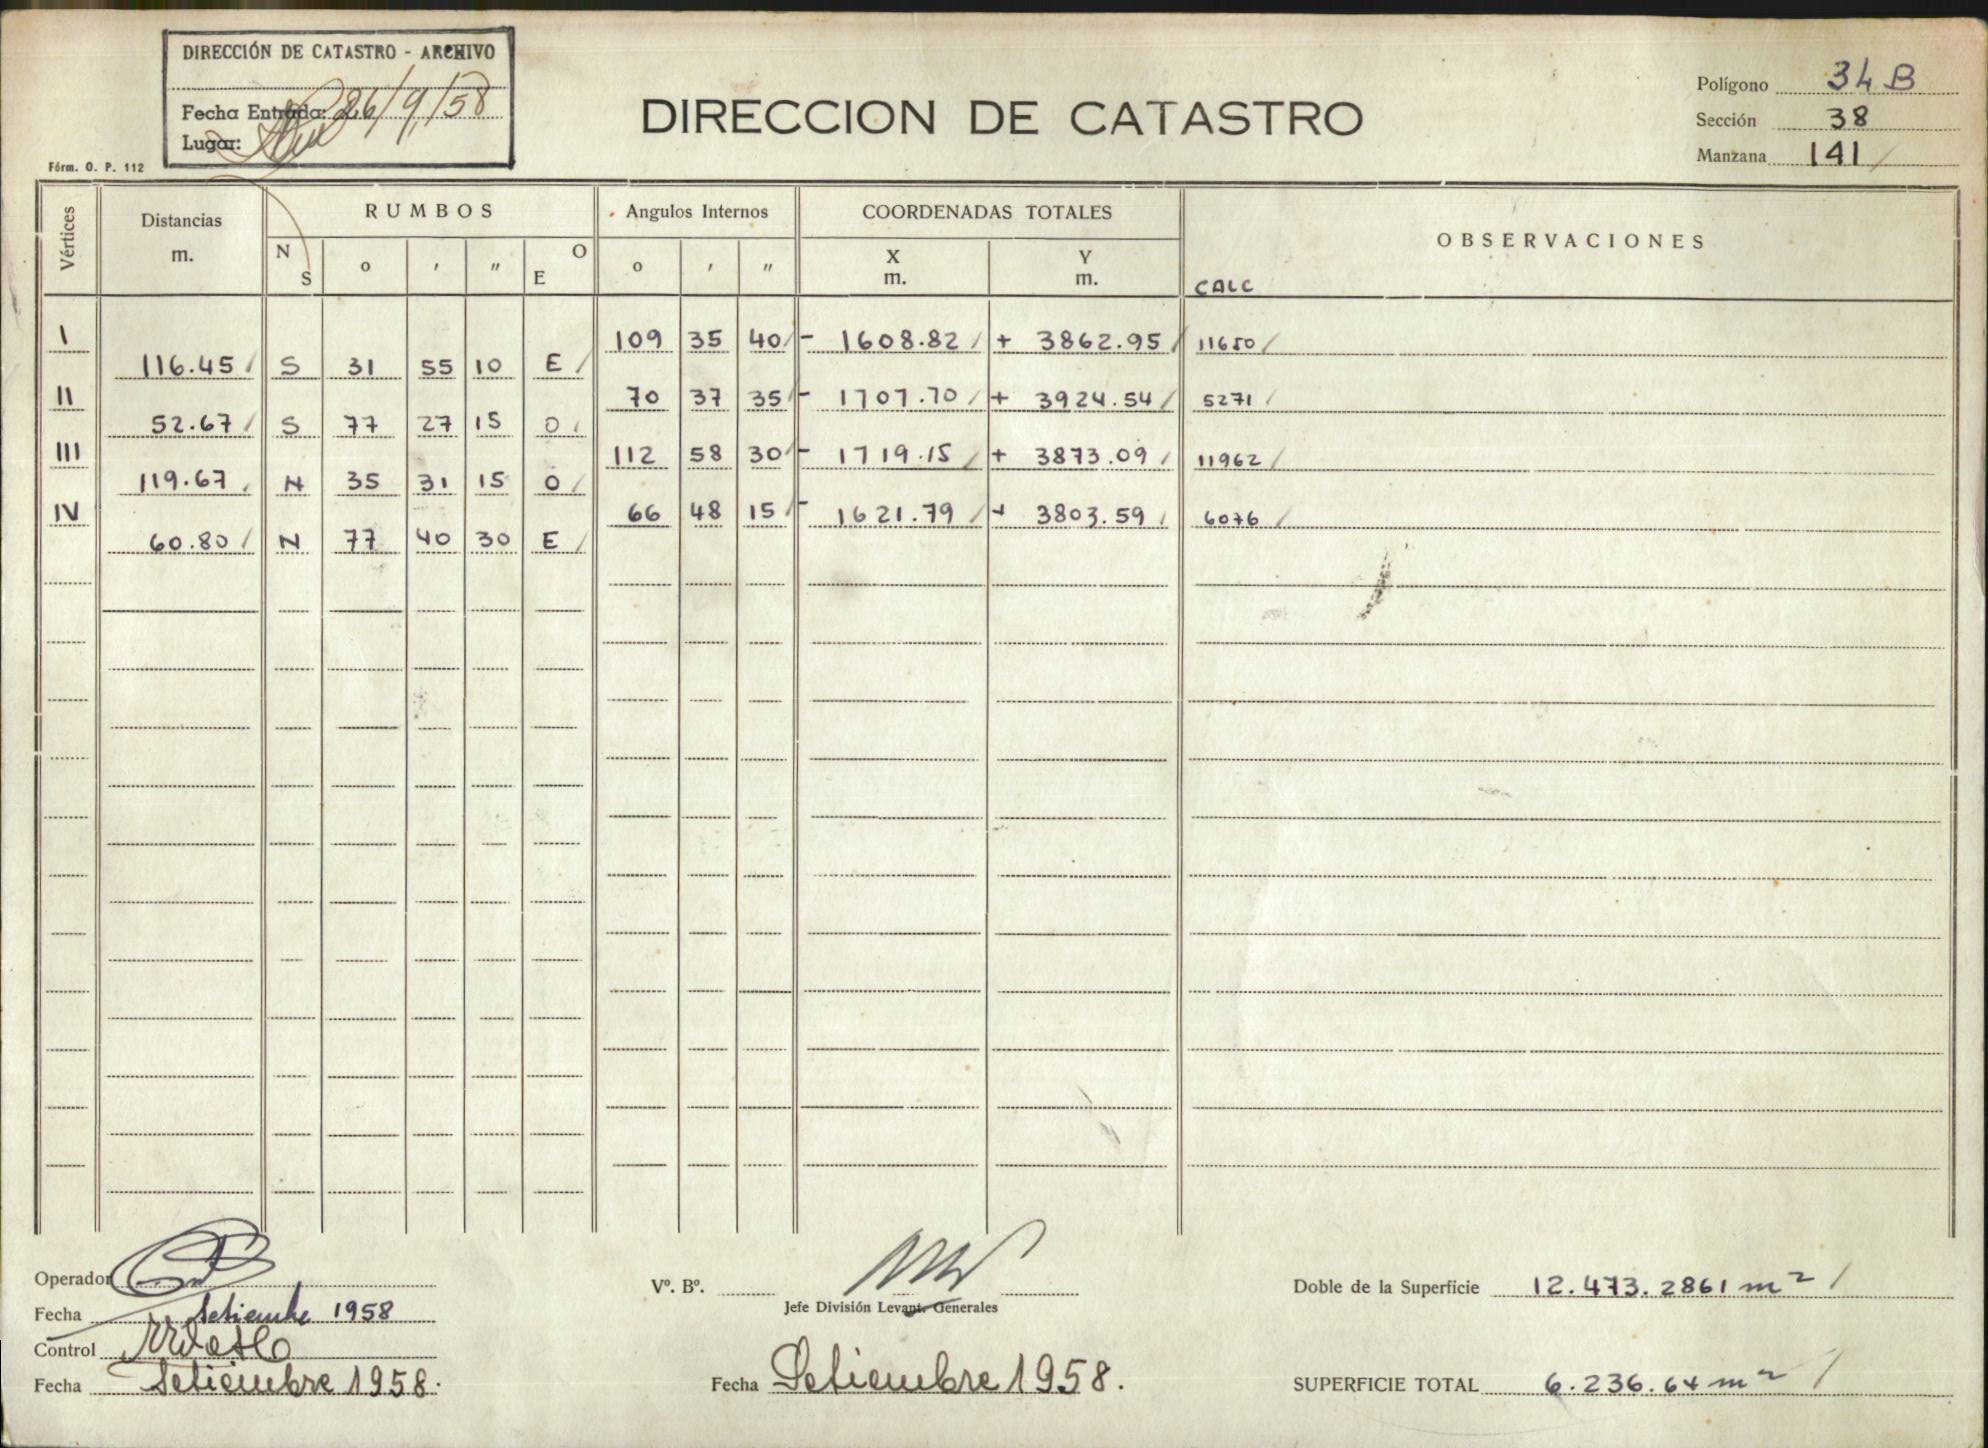 DIRECCIÓN DE CATASTRO - ARCHIVO
Fecha Entrada: 26/9/58
Lugar:
Fórm. O. P. 112
DIRECCION DE CATASTRO
Polígono 34 B
Sección 38
Manzana 141 /
Vértices Distancias m. RUMBOS Angulos Internos COORDENADAS TOTALES OBSERVACIONES
N S o ' " E O o ' " X m. Y m. CALC
I 109 35 40 / - 1608.82 / + 3862.95 / 11650 /
116.45 / S 31 55 10 E /
II 70 37 35 / - 1707.70 / + 3924.54 / 5271 /
52.67 / S 77 27 15 O /
III 112 58 30 / - 1719.15 / + 3873.09 / 11962 /
119.67 / N 35 31 15 O /
IV 66 48 15 / - 1621.79 / + 3803.59 / 6076 /
60.80 / N 77 40 30 E /
Operador
Fecha Setiembre 1958
Control
Fecha Setiembre 1958.
Vº. Bº.
Jefe División Levant. Generales
Fecha Setiembre 1958.
Doble de la Superficie 12.473.2861 m² /
SUPERFICIE TOTAL 6.236.64 m² /